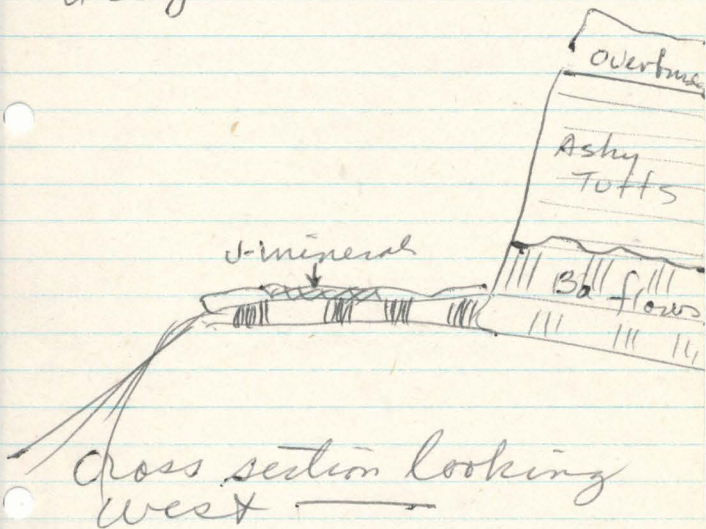 Ashy
Tuffs
U-mineral
Ba flows
Cross section looking
west